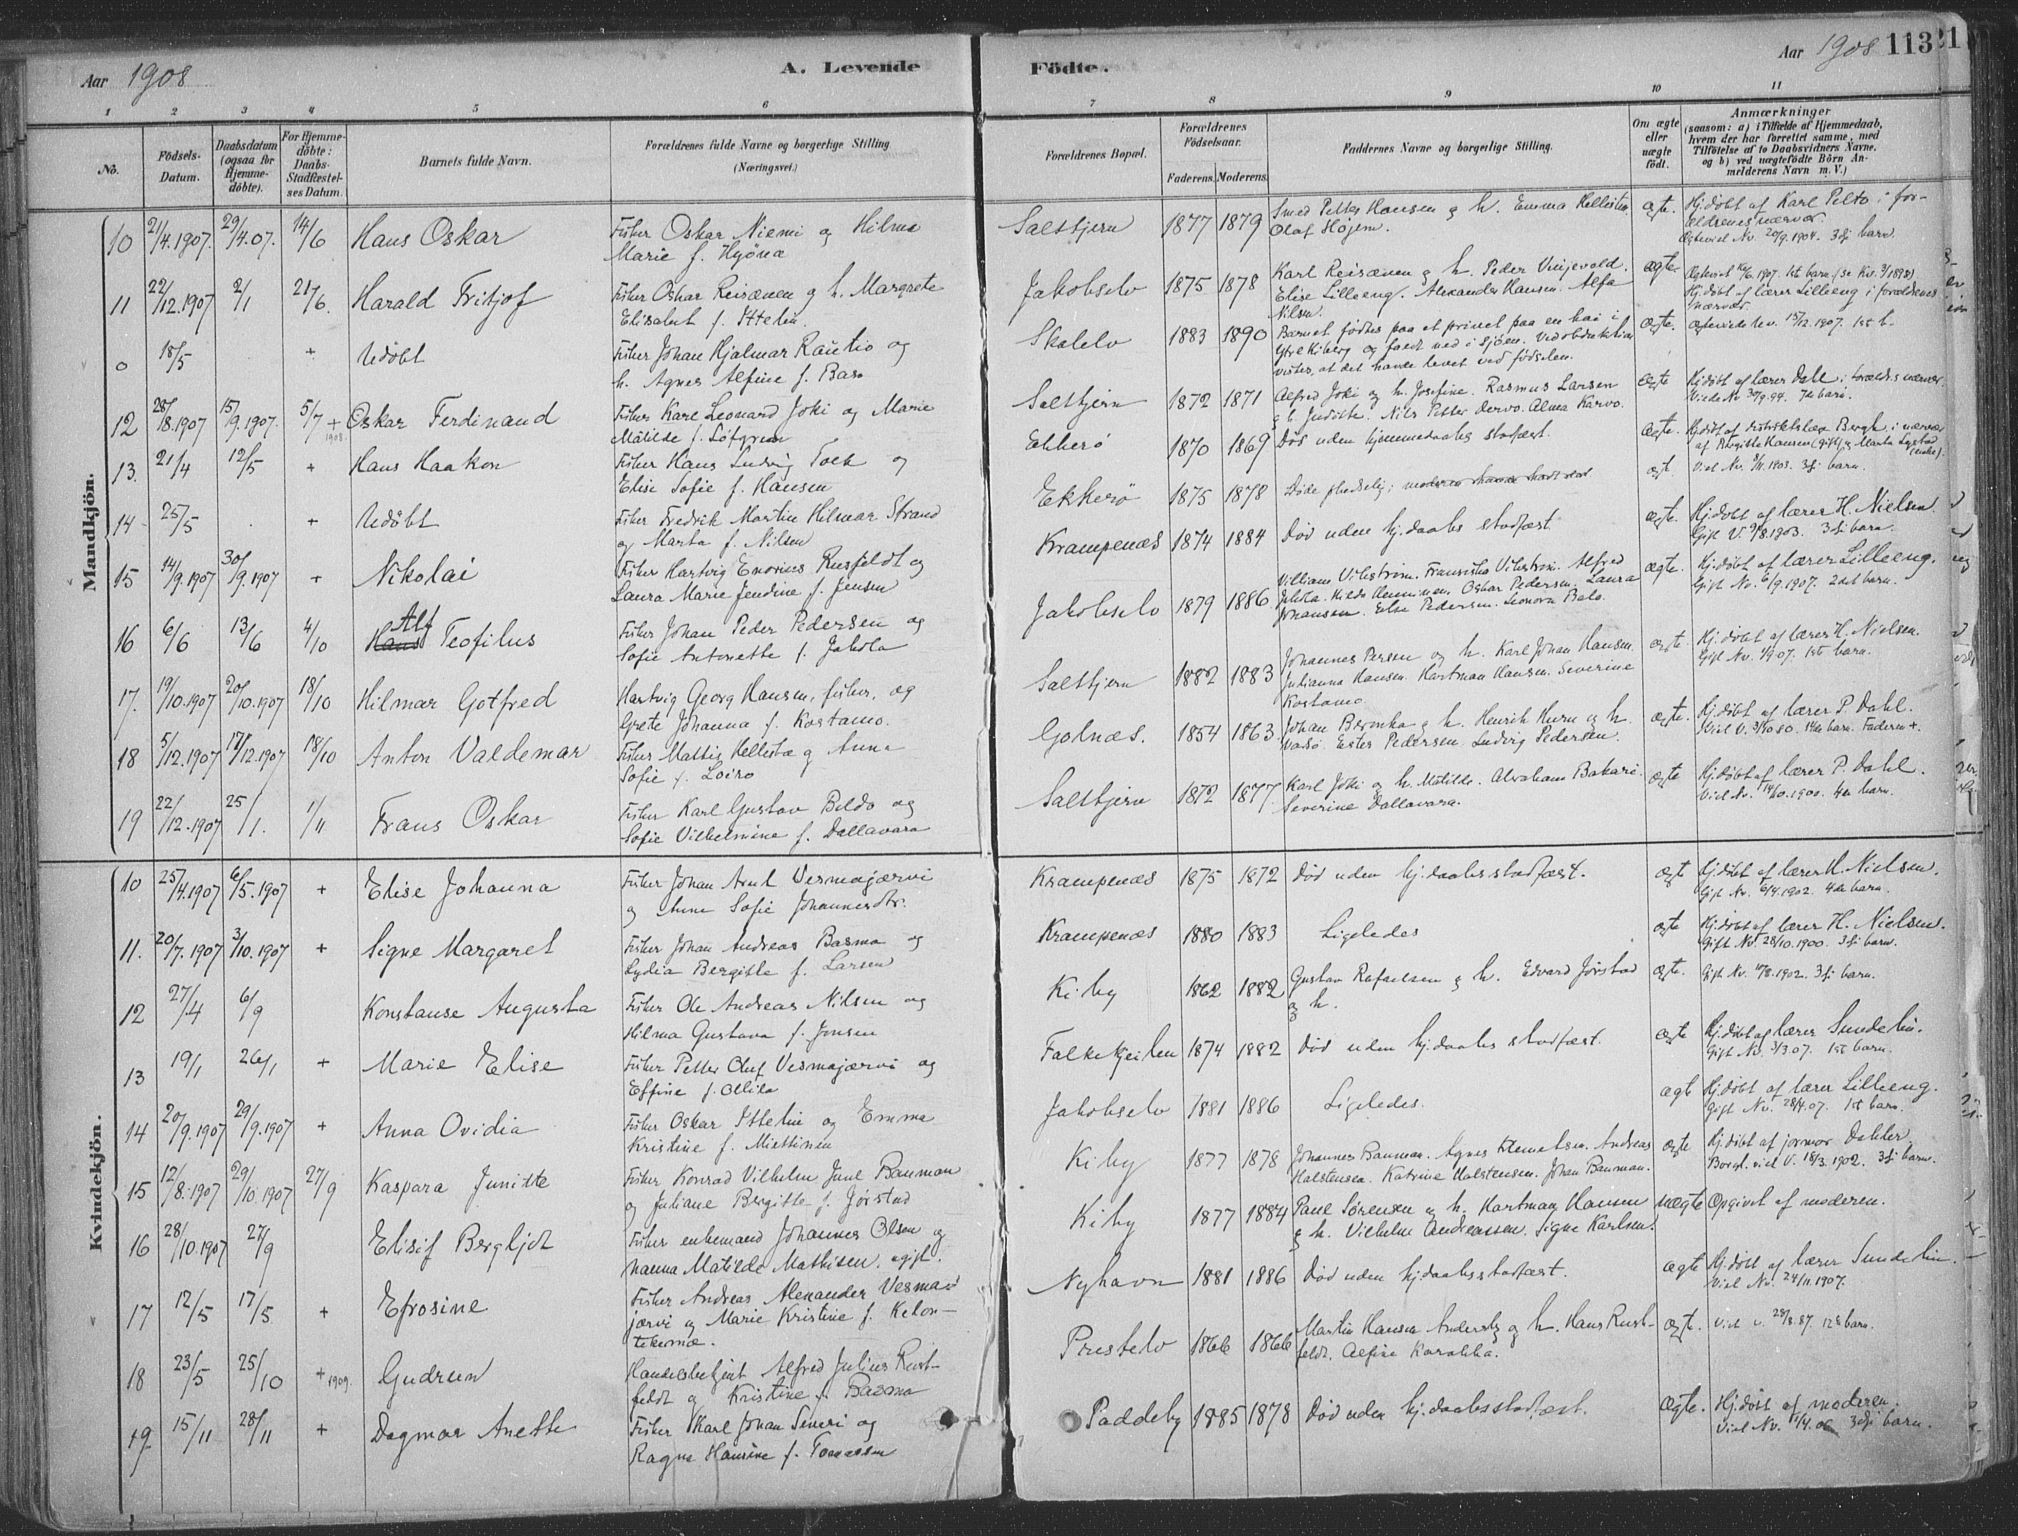 Aar 1908
A. Levende
Födte.
Aar 1908 113
1 2 3 4 5 6 7 8 9 10 11
No.
Födsels-
Datum.
Daabsdatum
(ogsaa for
Hjemme-
döbte).
For Hjemme-
döbte:
Daabs-
Stadfæstel-
ses Datum.
Barnets fulde Navn.
Forældrenes fulde Navne og borgerlige Stilling
(Næringsvei.)
Forældrenes Bopæl.
Forældrenes
Födselsaar.
Faderens. Moderens.
Faddernes Navne og borgerlige Stilling.
Om ægte
eller
uægte
födt.
Anmærkninger
(saasom: a) i Tilfælde af Hjemmedaab,
hvem der har forrettet samme, med
Tilföielse af to Daabsvidners Navne,
og b) ved uægtefödte Börn An-
melderens Navn m. V.)
Mandkjön.
10 21/4.1907. 29/4.07. 14/6 Hans Oskar Fisker Oskar Niemi og Hilma
Marie f. Hyöna
Saltbjern 1877 1879 Smed Petter Hansen g h. Emma
Olaf Höjem. ægte. Hj.döbt af Karl Pelto i for-
ældrenes nærvær.
Ægteviet Nv. 20/9.1904. 3dj barn.
11 22/12.1907 2/1 21/6. Harald Fritjof Fisker Oskar Reisænen g h. Margrete
Elisabet f. Ittelin
Jakobselv 1875 1878 Karl Reisænen g h. Peder
Elise Lilleeng. Alexander Hansen. Alfa
Nilsen. ægte. Hj.döbt af lærer Lilleeng i forældrenes
nærvær.
0 18/5 + Udöbt Fisker Johan Hjalmar Rautio og
h. Agnes Alfine f. Baso
Skalelv 1883 1890 Barnet födtes paa et privet paa en kai i
Ytre Kiberg og faldt ned i sjöen. Ved obduktion
vistes, at det havde levet ved födselen. ægte. ægteviede Nv. 15/12.1907. 1st b.
12 28/8.1907 15/9.1907. 5/7 +1908. Oskar Ferdinand Fisker Karl Leonard Joki og Marie
Matilde f. Löfgren
Saltbjern 1872 1871 Alfred Joki og h. Josefine. Rasmus Larsen
g h. Judithe. Nils Petter Dervo. Alma Karvo. ægte Hj.döbt af lærer Dahl i forældr.s nærvær.
Viede Nv 30/9.94. 7de barn.
13. 21/4 12/5 + Hans Haakon Fisker Hans Ludvig Toch og
Elise Sofie f. Hansen
Ekkerö 1870 1869 Död uden hjemmedaabs stadfæst. ægte. Hj.döbt af distriktslæge Bergh i nærvær
af Birgitte Hansen (gift) og Marta
Viet Nv. 8/11.1903. 3dj barn.
14 25/5 . + Udöbt Fisker Fredrik Martin Hilmar Strand
og Marta f. Nilsen
Ekkerö 1875 1878 Döde pludselig; ægt.
15 14/9.1907 30/9.1907 + Nikolai Fisker Hartvig Enovius Rusfeldt og
Laura Marie Jendine f. Jensen
Krampenæs 1874 1884 Död uden hj.daabs stadfæst. ægte. Hj.döbt af lærer H. Nielsen
Gift V. 9/8.1903. 3dj barn.
16 6/6 13/6 4/10 Alf
Hans Teofilus Fisker Johan Peder Pedersen og
Sofie Antonette f. Jakola
Jakobselv 1879 1886 William Vikström. Franciska Vikström. Alfred
Jakola. Hilda Henninen. Oskar Pedersen. Laura
Johansen. Else Pedersen. Leonora Balo. ægte. Hj.döbt af lærer Lilleeng.
Gift Nv. 6/9.1907. 2det barn.
17. 19/10.1907 20/10.1907 18/10 Hilmar Gotfred Hartvig Georg Hansen, fisker, og
Grete Johanna f. Kostamo.
Saltbjern 1882 1883 Johannes Persen og h. Karl Johan Hansen.
Julianna Hansen. Hartman Hansen. Severine
Kostamo. ægte. Hj.döbt af lærer H. Nielsen.
Gift Nv. 07. 1ste barn.
18 5/12.1907 17/12.1907 18/10 Anton Valdemar Fisker Mattis Hellesta g Anna
Sofie f. Loiro
Golnæs. 1854 1863 Johan Beronka g h. Henrik Hurn g h.
Vadsö. Ester Pedersen. Ludvig Pedersen. ægte. Hj.döbt af lærer P. Dahl.
Viet V. 3/10.80. 14de barn. Faderen +.
19 22/12.1907 25/1. 1/11 Frans Oskar Fisker Karl Gustav Beldo og
Sofie Vilhelmine f. Dallavara
Saltbjern 1872 1877. Karl Joki og h. Matilde. Abraham Bakari.
Severine Dallavara. ægte Hj.döbt af lærer P. Dahl.
Viet Nv. 14/10.1900. 4de barn.
Kvindekjön.
10 25/4.1907 6/5.1907 + Elise Johanna Fisker Johan Arnt Vesmajærvi
og Anna Sofie Johannesdtr.
Krampenæs 1875 1872 Död uden hj.daabs stadfæst. ægt Hj.döbt af lærer H. Nielsen.
Gift Nv. 6/4.1902. 4de barn.
11. 20/7.1907 3/10.1907 + Signe Margaret Fisker Johan Andreas Basma og
Lydia Bergitte f. Larsen
Krampenæs 1880 1883 Ligeledes ægte Hj.döbt af lærer H. Nielsen.
Gift Nv. 28/10.1900. 3dj barn.
12 27/4 6/9 Konstanse Augusta Fisker Ole Andreas Nilsen og
Hilma Gustava f. Jonsen
Kiby 1862 1882 Gustav Rafaelsen g h. Edvard Jörstad
g h. ægte. Gift Nv. 17/8.1902. 3dj barn.
13 19/1 26/1 + Marie Elise Fisker Petter Oluf Vesmajærvi og
Effine f. Ollila
Falkekjeilen 1874 1882 Död uden hj.daabs stadfæst. ægte Hj.döbt af lærer Sundelin.
Gift Nv. 3/3.07. 1ste barn.
14 20/9.1907 29/9.1907 + Anna Ovidia Fisker Oskar Ittelin og Emma
Kristine f. Miettinen
Jakobselv 1881 1886 Ligeledes. ægt Hj.döbt af lærer Lilleeng.
Gift Nv. 28/4.07. 1st barn.
15 12/8.1907 29/10.1907 27/9 Kaspara Junitte Fisker Konrad Vilhelm Juul Bauman
og Juliane Bergitte f. Jörstad
Kiby 1877 1878 Johannes Bauman. Agnes Klemetsen. Andreas
Halstensen. Katrine Halstensen. Johan Bauman. ægte Hj.döbt af jormor Dahler
Borgl. viet V. 18/3.1902. 3dj barn.
16 28/10.1907 27/9 Elisif Bergljot Fisker enkemand Johannes Olsen og
Nanna Matilde Mathisen, ugift.
Kiby 1877 1884 Paul Sörensen og h. Hartman Hansen
g h. Vilhelm Andreassen. Signe Karlsen. uægte Opgivet af moderen.
17 12/5 17/5 + Efrosine Fisker Andreas Alexander Vesma-
jærvi og Marie Kristine f. Kelon-
tekemæ.
Nyhavn 1881 1886 Död uden hj.daabsstadfæst. ægte Hj.döbt af lærer Sundelin.
Viet Nv. 24/11.1907.
18 23/5 25/10 +1909. Gudrun Handelsbetjent Alfred Julius Rust-
feldt og Kristine f. Basma
Prestelv 1866 1866 Martin Hansen Andersby og h. Hans Rust-
feldt. Alfine Karakka. ægte. Viet V. 28/8.87. 12te barn.
19. 15/11 28/11 + Dagmar Anette Fisker Karl Johan Severi og
Ragna Hansine f. Tomassen
Paddeby 1885 1878 Död uden hj.daabsstadfæst. ægte. Hj.döbt af moderen.
Viet Nv. 1/4.06 3dj barn.